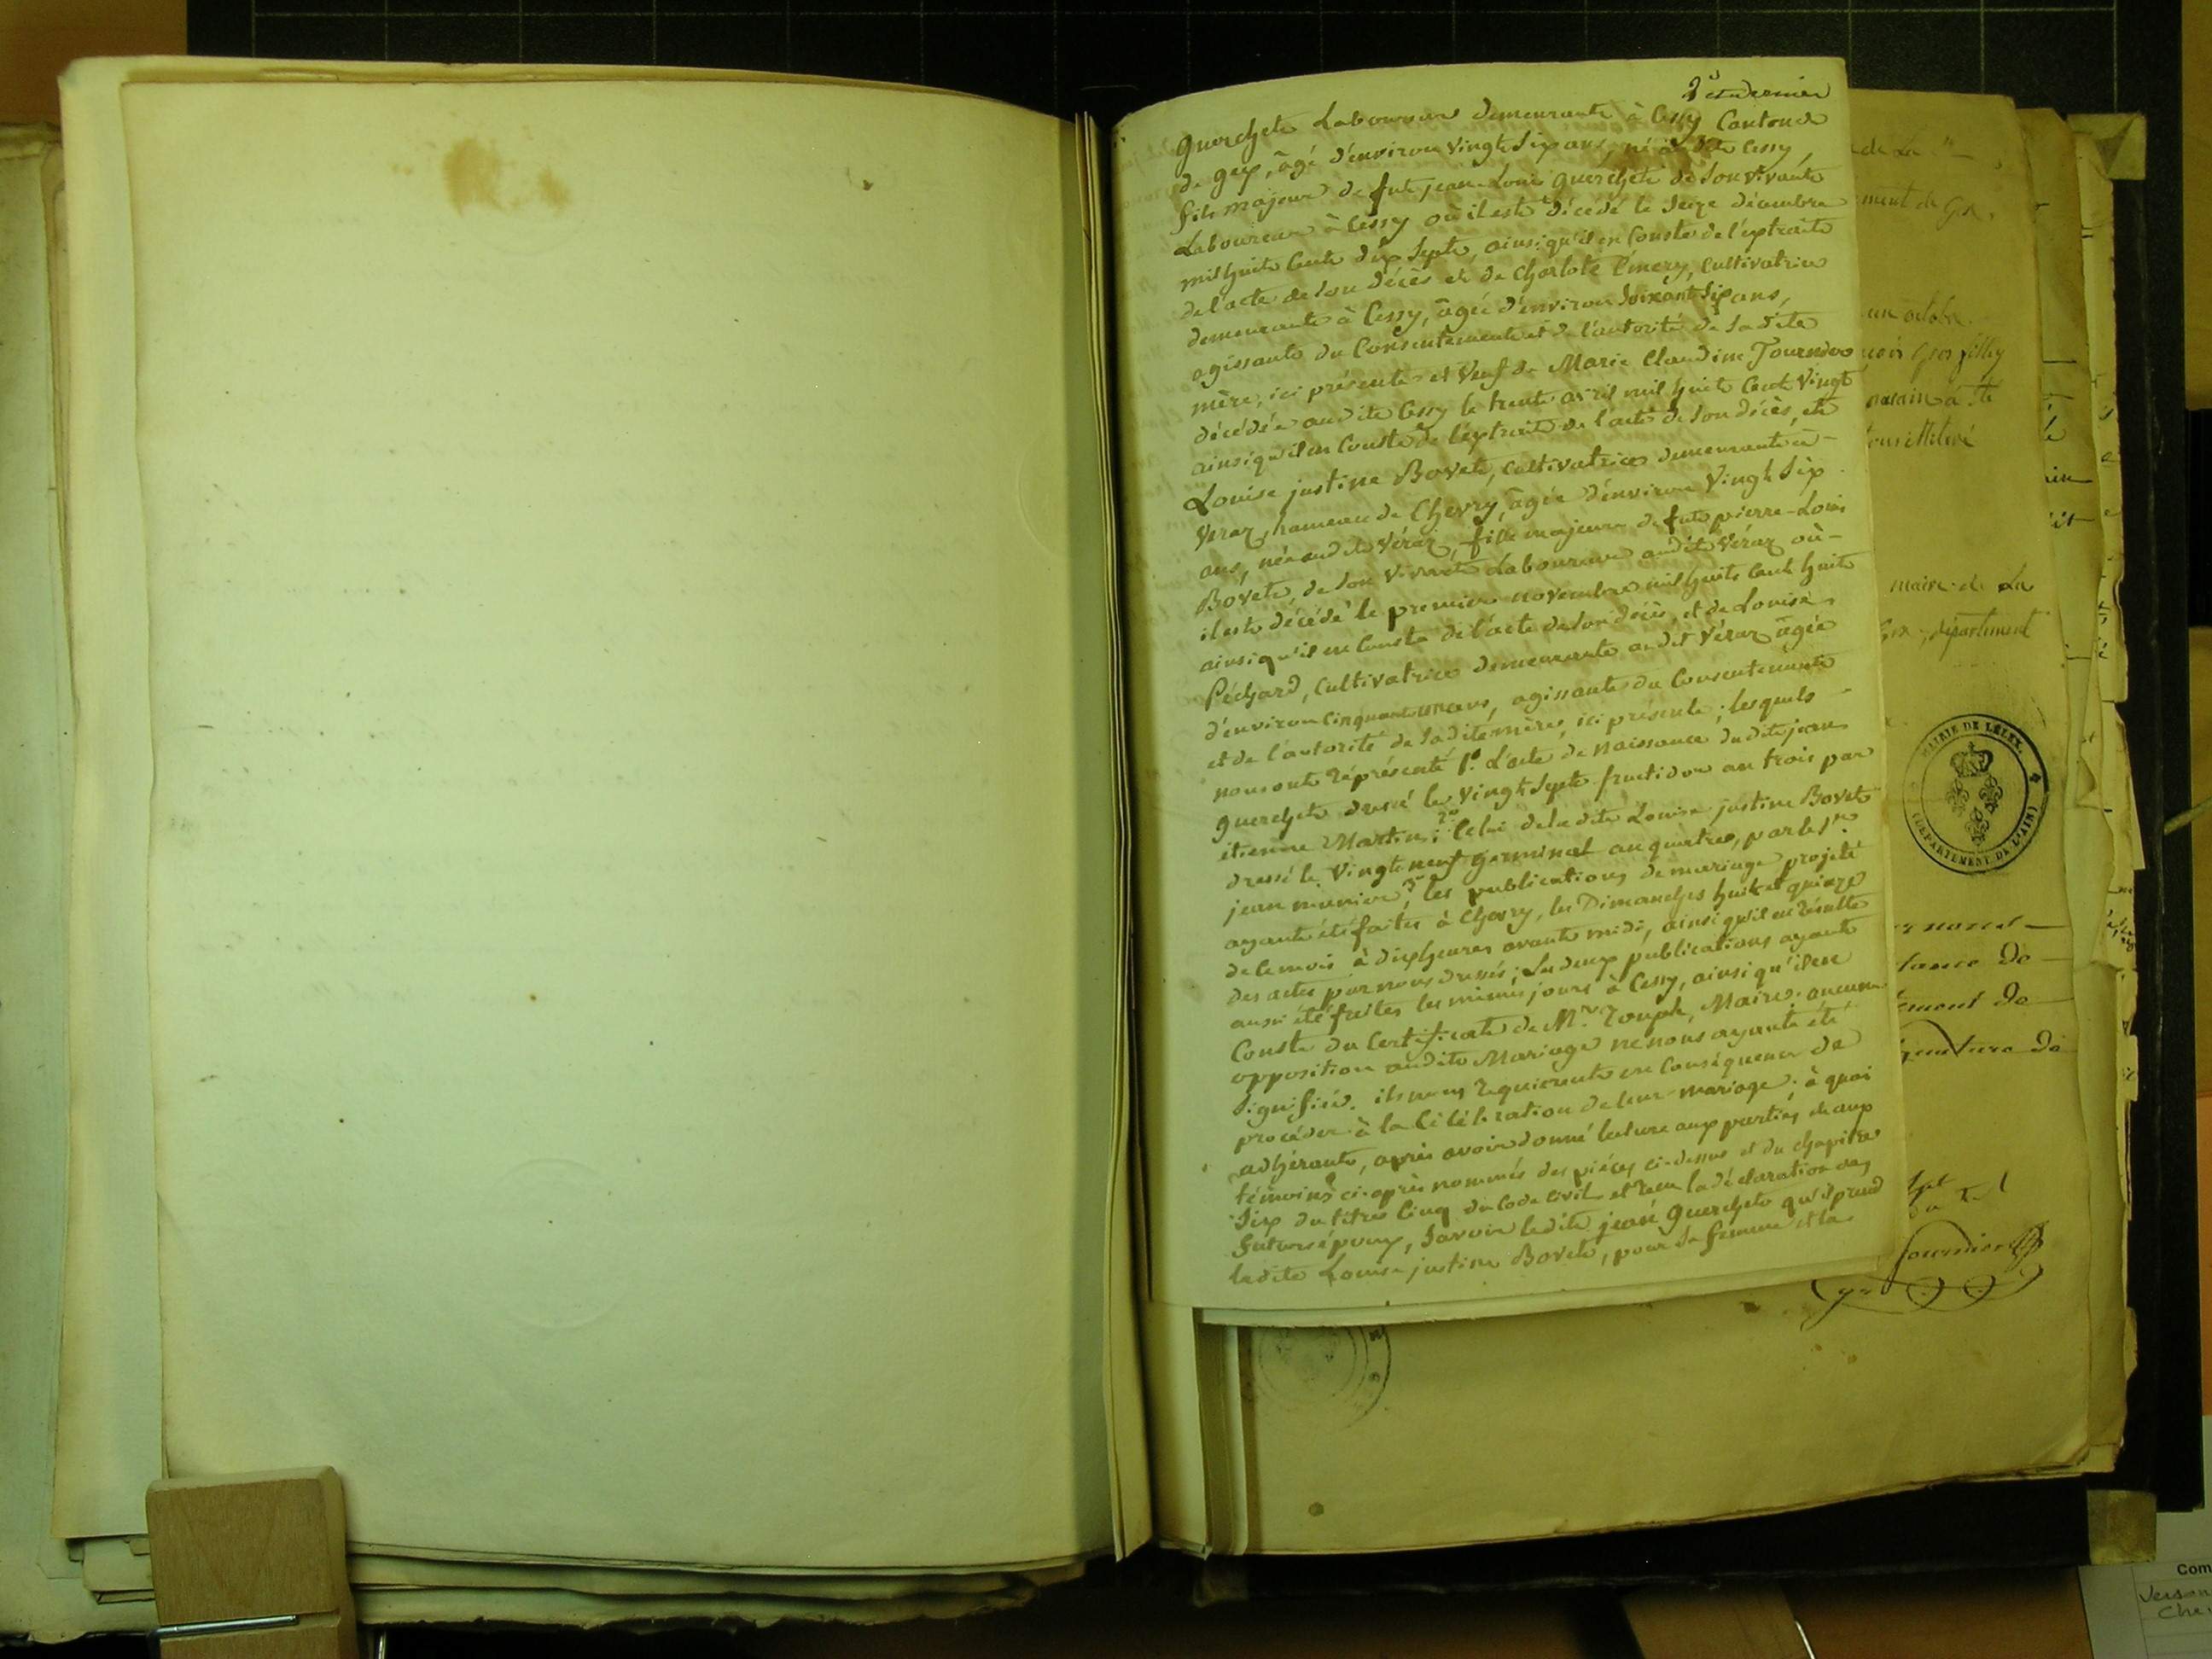 2 et dernier
Querchete Laboureur demeurante à Cessy Canton de
de gex, âgé d'environ vingt six ans, né à dite Cessy,
fils majeur de fute jean-Louis querchete de son vivante
Laboureur à Cessy où il este décédé le seize décembre
mil huite Cente dix septe, ainsi qu'il en Conste de l'extraite
de l'acte de son décès et de Charlote Emery, Cultivatrice
demeurante à Cessy, âgée d'environ soixant six ans,
agissante du Consentemente et de l'autorité de sa dite
mère, ici présente et veuf de Marie Claudine Tournier
décédée au dite Cessy le trente avril mil huit Cent vingt
ainsi qu'il en Conste de l'extraite de l'acte de son décès, ete
Louise justine Bovete, cultivatrice demeurante à-
Véraz, hameau de Chevry, âgée d'environ Vingt six
ans, née audite Véraz, fille majeure de fute pierre-Louis
Bovete, de son vivante Laboureur audite Véraz où-
il este décédé le premier novembre mil huite Cent huite
ainsi qu'il en Conste de l'acte de son décès, et de Louise
Péchard, Cultivatrice demeurante audit Véraz âgée
d'environ Cinquante ans, agissante du Consentemente
et de l'autorité de sa dite mère, ici présente; lesquels-
nous onte représenté 1°. L'acte de naissance dudite jean
querchete dressé le vingt septe fructidor an trois par
étienne Martin; 2° Celui de la dite Louise justine Bovete
dressé le Vingt neuf germinal an quatre, par le sr
jean munier, 3° les publications de mariage projeté
ayante été faites à Chevry, les Dimanches huit et quinze
de Ce mois à dix heures avante midi, ainsi qu'il en résulte
des actes par nous dressés; Les deux publications ayante
aussi été faites les mêmes jours à Cessy, ainsi qu'il en
Conste du Certificate de Mr. Rouph, Maire. aucune
opposition audite Mariage ne nous ayante été
signifiée. ils nous requierente en Conséquence de
procéder à la Célébration de leur mariage; à quoi
adhérante, après avoir donné lecture aux parties et aux
témoins ci-après nommés des pièces ci-dessus et du chapitre
six du titre Cinq du Code Civil et reçu la déclaration des
futurs époux, savoir ledite jean querchete qu'il prend
ladite Louise justine Bovete, pour sa femme et la
de La
ment de Gex,
un octobre
Gros filley
illitéré
maire de La
Gex, département
MAIRIE DE LELEX.
(DEPARTEMENT DE L'AIN)
fournier
Com
Verson
Che